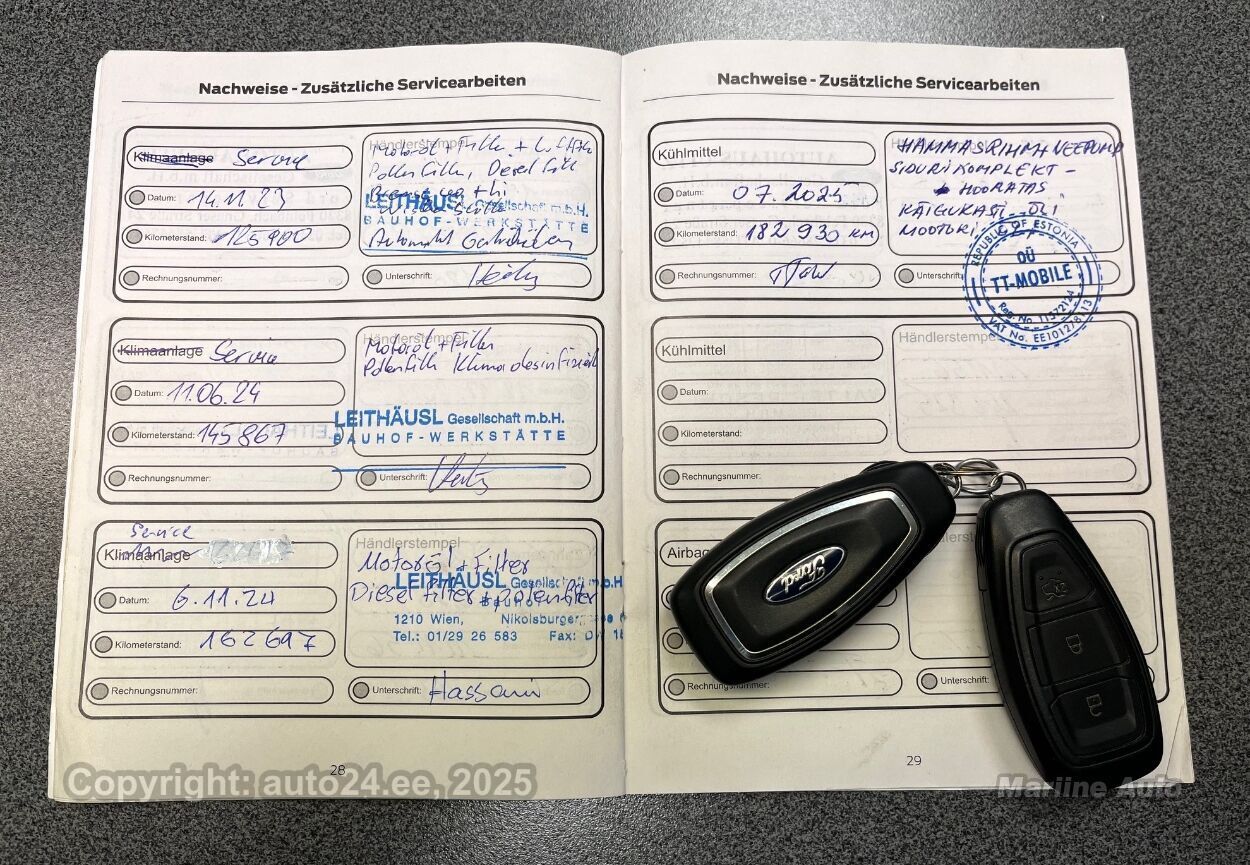 Nachweise - Zusätzliche Servicearbeiten
Klimaanlage Service
Datum: 14.11.23
Kilometerstand: 125900
Rechnungsnummer:
Händlerstempel
Motoröl + Filter + Luftfilter
Pollenfilter, Diesel Filt
LEITHÄUSL Gesellschaft m.b.H.
BAUHOF-WERKSTÄTTE
Automatik
Unterschrift:
Klimaanlage Service
Datum: 11.06.24
Kilometerstand: 145867
Rechnungsnummer:
Händlerstempel
Motoröl + Filter
Pollenfilter Klima desinfiziert
LEITHÄUSL Gesellschaft m.b.H.
BAUHOF-WERKSTÄTTE
Unterschrift:
Service
Klimaanlage
Datum: 6.11.24
Kilometerstand: 162697
Rechnungsnummer:
Händlerstempel
Motoröl + Filter
LEITHÄUSL Gesellschaft m.b.H.
Diesel filter + pollenfilter
Bauhof
1210 Wien, Nikolsburger
Tel.: 01/29 26 583 Fax: D
Unterschrift: Hassani
28
Nachweise - Zusätzliche Servicearbeiten
Kühlmittel
Datum: 07.2025
Kilometerstand: 182 930 KM
Rechnungsnummer:
HAMMASRIHM+VEEPUMP
SIDURI KOMPLEKT -
+ HOORATAS
KÄIGUKASTI ÕLI
MOOTORI
Unterschrift
REPUBLIC OF ESTONIA
OÜ
TT-MOBILE
Reg. No 11572124
VAT No. EE101278113
Kühlmittel
Datum:
Kilometerstand:
Rechnungsnummer:
Händlerstempel
Airbag
Rechnungsnummer:
Unterschrift:
Ford
29
Copyright: auto24.ee, 2025
Mariine Auto